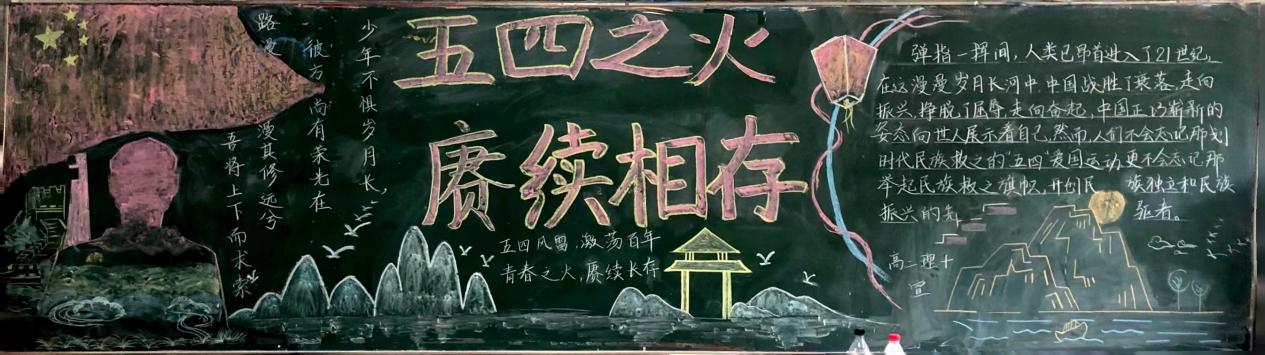 少年不惧岁月长，
彼方尚有荣光在
路漫
漫其修远兮
吾将上下而求索
五四之火
赓续相存
五四风雷，激荡百年
青春之火，赓续长存
弹指一挥间，人类已昂首进入了21世纪。
在这漫漫岁月长河中，中国战胜了衰落，走向
振兴，挣脱了屈辱，走向奋起，中国正以崭新的
姿态向世人展示着自己，然而，人们不会忘记那划
时代民族救亡的“五四”爱国运动，更不会忘记那
举起民族救亡旗帜，开创民 族独立和民族
振兴的先 驱者。
高二理十
宣